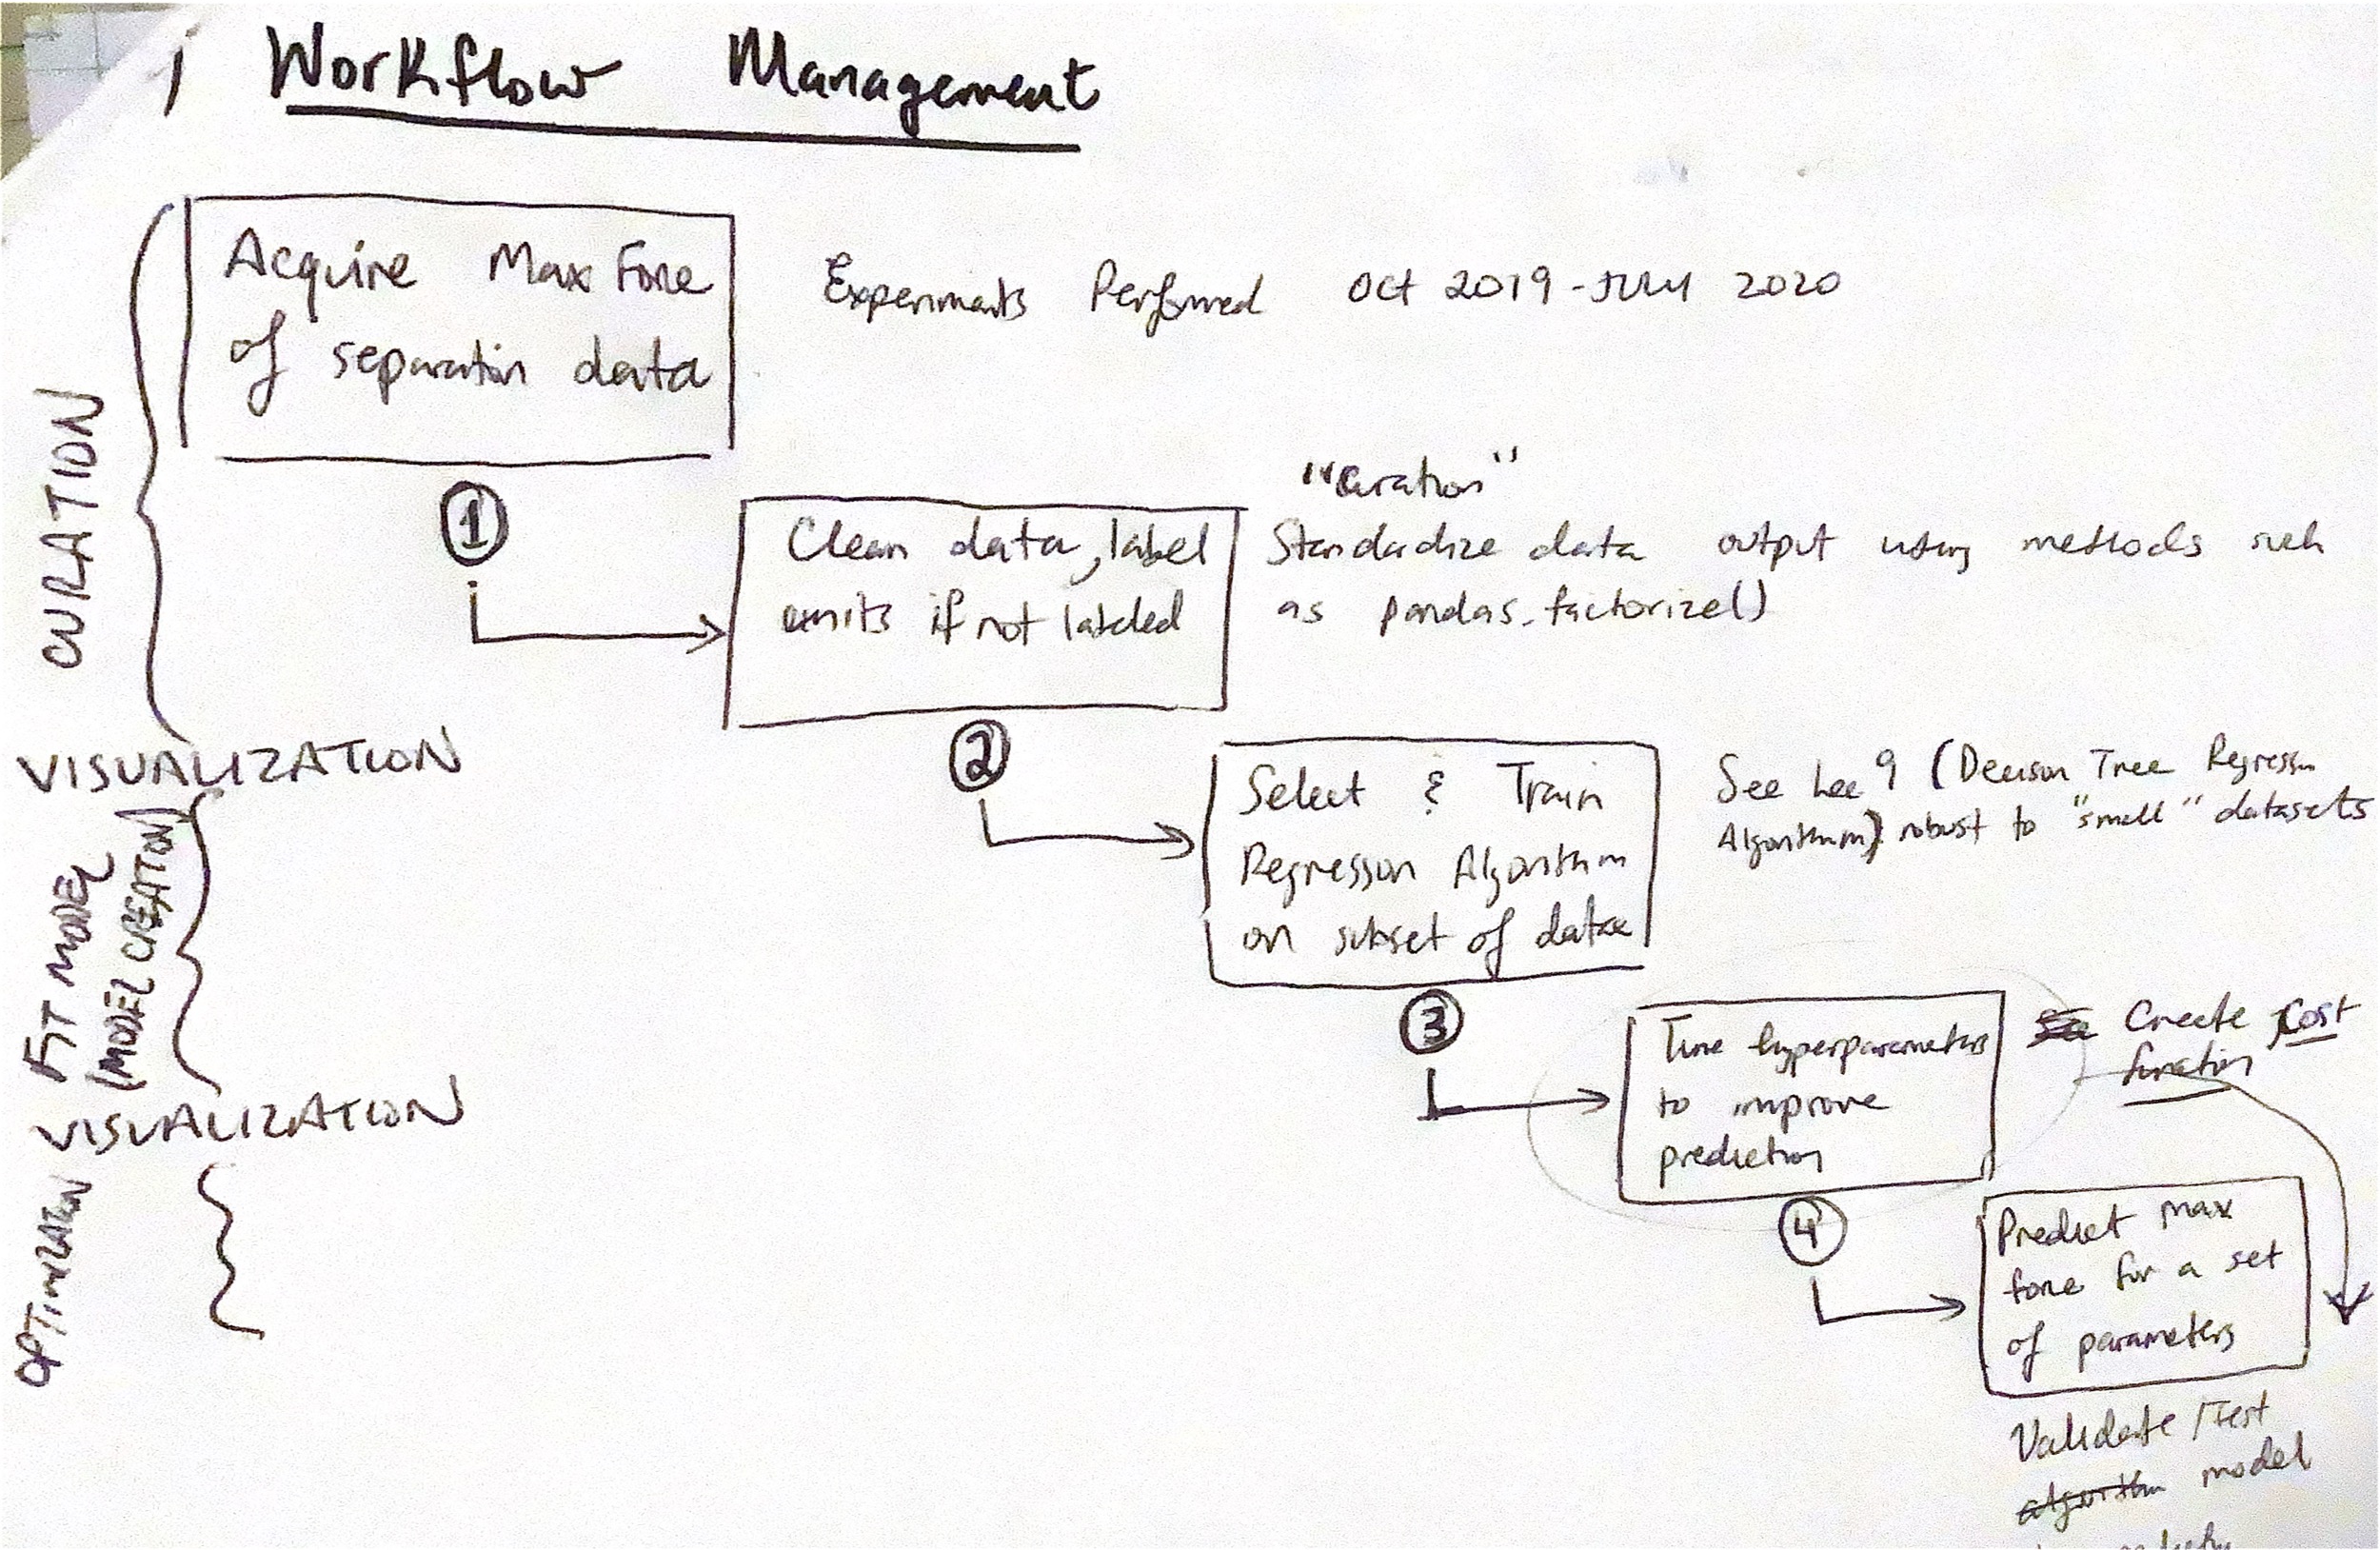 Workflow Management
Acquire Max Force
of separation data
Experiments Performed Oct 2019 - July 2020
CURATION
1
"Curation"
Clean data, label
units if not labeled
Standardize data output using methods such
as pandas.factorize()
2
VISUALIZATION
Select & Train
Regression Algorithm
on subset of data
See Lec 9 (Decision Tree Regression
Algorithm) robust to "small" datasets
FIT MODEL
(MODEL CREATION)
3
Tune hyperparameters
to improve
prediction
See Create Cost
function
VISUALIZATION
4
Predict max
force for a set
of parameters
OPTIMIZATION
Validate / Test
algorithm model